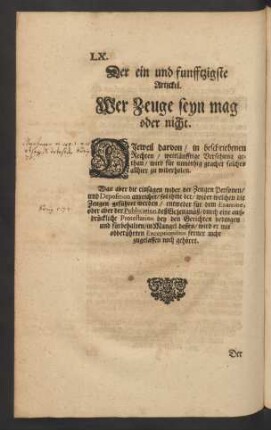 LX.
Der ein und funfftzigste
Artickel.
Wer Zeuge seyn mag
oder nicht.
Dieweil darvon / in beschriebenen
Rechten / weitläufftige Versehung ge-
than / wird für unnöthig geachtet solches
allhier zu wiederholen.
Was aber die einsagen wieder der Zeugen Personen /
und Deposition anreichet / soll ihme der / wider welchen die
Zeugen geführet werden / entweder für dem Examine,
oder aber der Publication deß Gezeugnüß / durch eine auß-
drückliche Protestation bey den Gerichten bedingen
und fürbehalten / in Mangel dessen / wird er mit
obberührten Exceptionibus ferner nicht
zugelassen noch gehöret.
Der